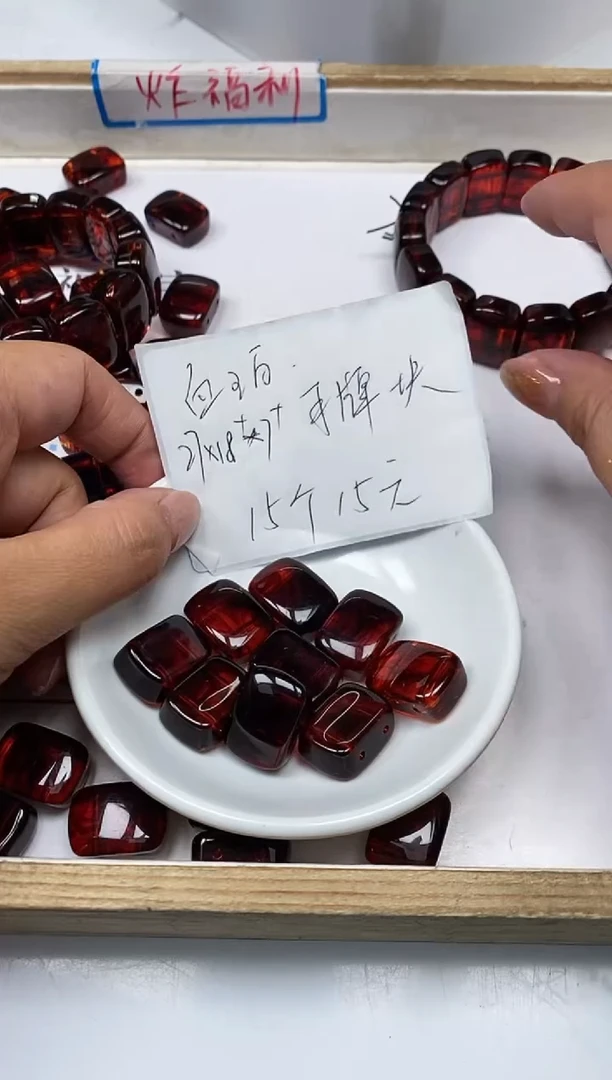 炸福利
血珀.
27×18⁺×7⁺ 手牌 块
15个 15元